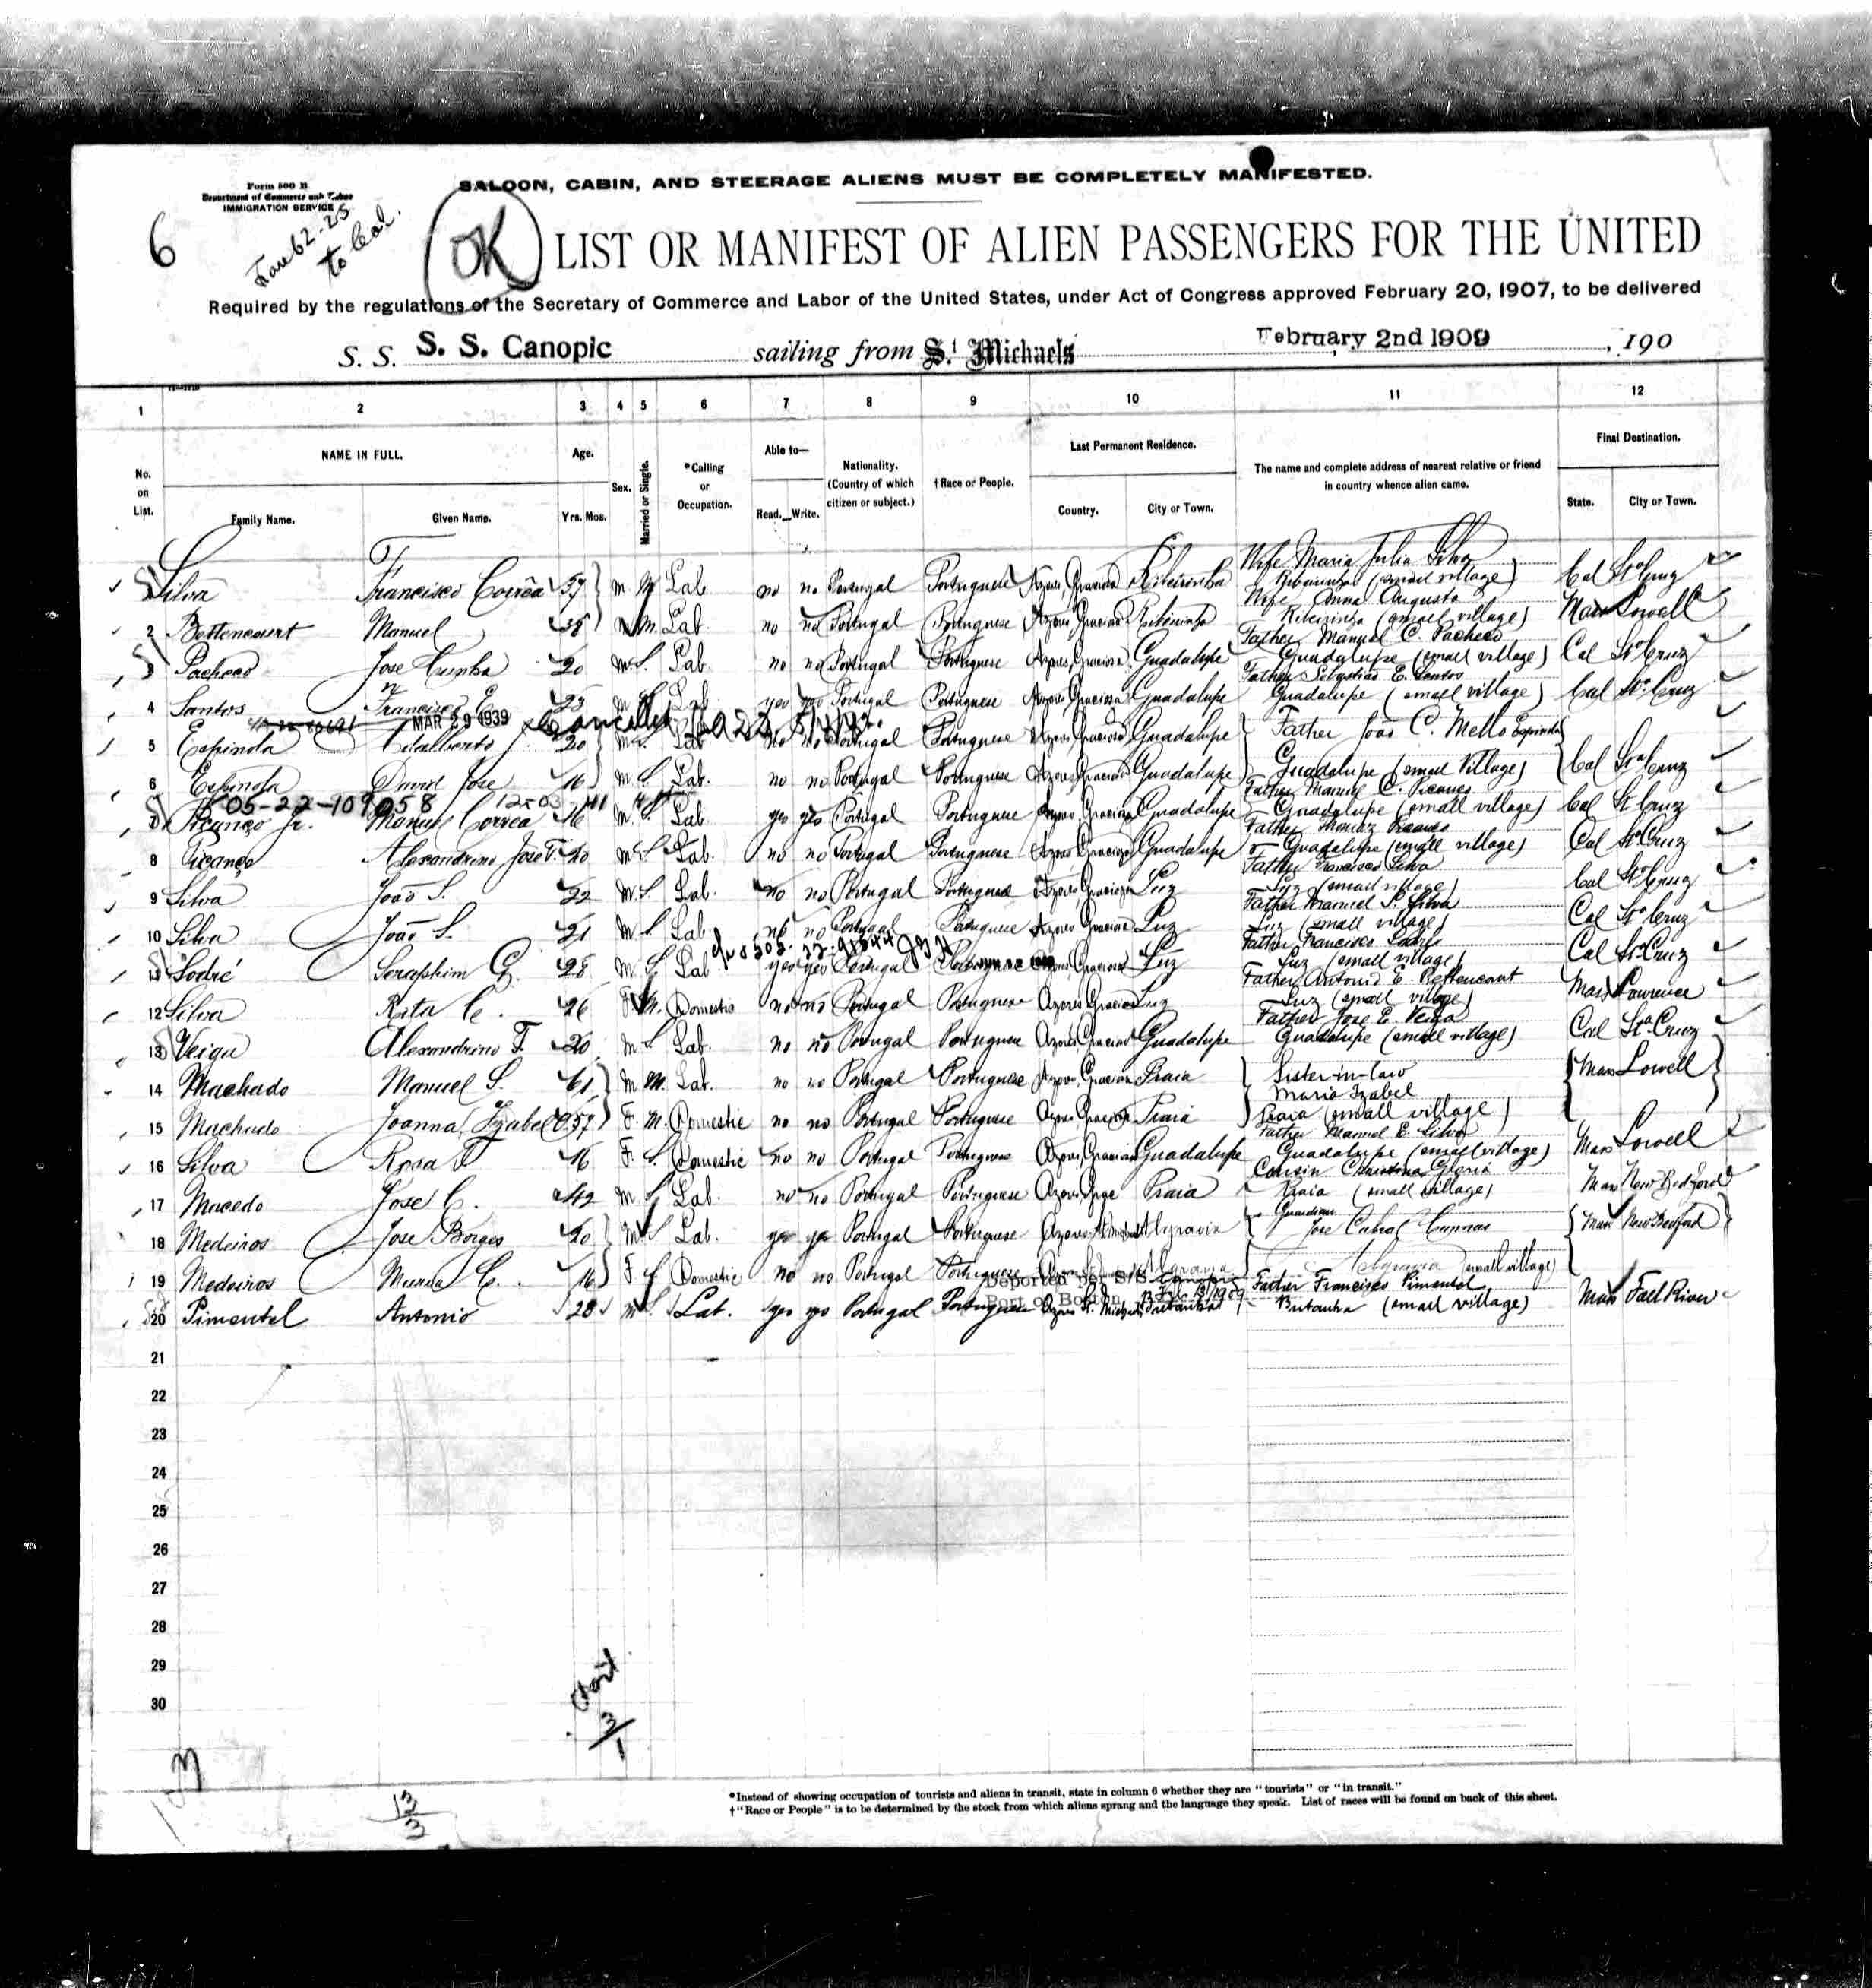 Form 500 B
Department of Commerce and Labor
IMMIGRATION SERVICE
6
to Cal.
OK
SALOON, CABIN, AND STEERAGE ALIENS MUST BE COMPLETELY MANIFESTED.
LIST OR MANIFEST OF ALIEN PASSENGERS FOR THE UNITED
Required by the regulations of the Secretary of Commerce and Labor of the United States, under Act of Congress approved February 20, 1907, to be delivered
S. S. S. S. Canopic sailing from St. Michaels February 2nd 1909 , 190
1 2 3 4 5 6 7 8 9 10 11 12
No. on List. NAME IN FULL. Family Name. Given Name. Age. Yrs. Mos. Sex. Married or Single. *Calling or Occupation. Able to— Read. Write. Nationality. (Country of which citizen or subject.) †Race or People. Last Permanent Residence. Country. City or Town. The name and complete address of nearest relative or friend in country whence alien came. Final Destination. State. City or Town.
Silva Francisco Corrêa 37 m M Lab no no Portugal Portuguese Azores, Graciosa Ribeirinha Wife Maria Julia Silva Ribeirinha (small village) Cal Sta Cruz
2 Bettencourt Manuel 38 M. Lab. no no Portugal Portuguese Azores, Graciosa Ribeirinha Wife Anna Augusta Ribeirinha (small village) Mass Lowell
3 Pacheco Jose Cunha 20 m S. Lab. no no Portugal Portuguese Azores, Graciosa Guadalupe Father Manuel C. Pacheco Guadalupe (small village) Cal Sta Cruz
4 Santos Francisco E. 23 m S Lab yes yes Portugal Portuguese Azores, Graciosa Guadalupe Father E. Santos Guadalupe (small village) Cal Sta Cruz
MAR 29 1939 Cancelled
5 Espinola Adalberto J. 20 m S. Lab no no Portugal Portuguese Azores, Graciosa Guadalupe Father João C. Mello Espinola
6 Espinola David Jose 16 m S. Lab. no no Portugal Portuguese Azores, Graciosa Guadalupe Guadalupe (small Village) Cal Sta Cruz
505-22-109058
7 Picanço Jr. Manuel Corrêa 16 m. S. Lab. yes yes Portugal Portuguese Azores, Graciosa Guadalupe Father Manuel C. Picanço Guadalupe (small village) Cal Sta Cruz
8 Picanço Alexandrino Jose T. 20 m S Lab. no no Portugal Portuguese Azores, Graciosa Guadalupe Father Thomaz Picanço Guadalupe (small village) Cal Sta Cruz
9 Silva João S. 22 m S. Lab. no no Portugal Portuguese Azores, Graciosa Luz Father Francisco Silva Luz (small village) Cal Sta Cruz
10 Silva João S. 21 m S Lab no no Portugal Portuguese Azores, Graciosa Luz Father Manuel S. Silva Luz (small village) Cal Sta Cruz
11 Sodré Seraphim G. 28 m. S. Lab yes yes Portugal Portuguese Azores, Graciosa Luz Father Francisco Sodré Luz (small village) Cal Sta Cruz
12 Silva Rita C. 26 F M. Domestic no no Portugal Portuguese Azores, Graciosa Luz Father Antonio E. Bettencourt Luz (small village) Mass Lawrence
13 Veiga Alexandrino F. 20 m S Lab. no no Portugal Portuguese Azores, Graciosa Guadalupe Father Jose E. Veiga Guadalupe (small village) Cal Sta Cruz
14 Machado Manuel S. 61 m M. Lab. no no Portugal Portuguese Azores, Graciosa Praia Sister-in-law Maria Izabel Mass Lowell
15 Machado Joanna Izabel 57 F. M. Domestic no no Portugal Portuguese Azores, Graciosa Praia Praia (small village)
16 Silva Rosa F 16 F. S. Domestic no no Portugal Portuguese Azores, Graciosa Guadalupe Father Manuel E. Silva Guadalupe (small village) Mass Lowell
17 Macedo Jose C. 42 m S Lab. no no Portugal Portuguese Azores Praia Cousin Christina Gloria Praia (small village) Mass New Bedford
18 Medeiros Jose Borges 20 M S Lab. yes yes Portugal Portuguese Azores Algravia Guardian Jose Cabral Mass New Bedford
19 Medeiros C. 16 F S Domestic no no Portugal Portuguese Algravia Algravia (small village)
Deported per S/S Canopic
Port of Boston 1909
20 Pimentel Antonio 28 m S. Lab. yes yes Portugal Portuguese Azores St. Michaels Bretanha Father Francisco Pimentel Bretanha (small village) Mass Fall River
21
22
23
24
25
26
27
28
29
30
*Instead of showing occupation of tourists and aliens in transit, state in column 6 whether they are "tourists" or "in transit."
†"Race or People" is to be determined by the stock from which aliens sprang and the language they speak. List of races will be found on back of this sheet.